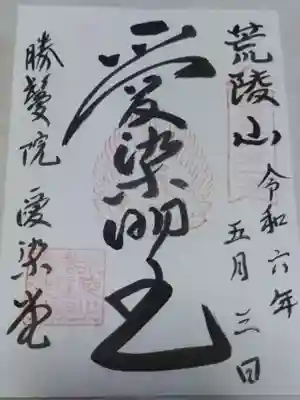 荒陵山
令和六年
五月三日
愛染明王
勝鬘院 愛染堂